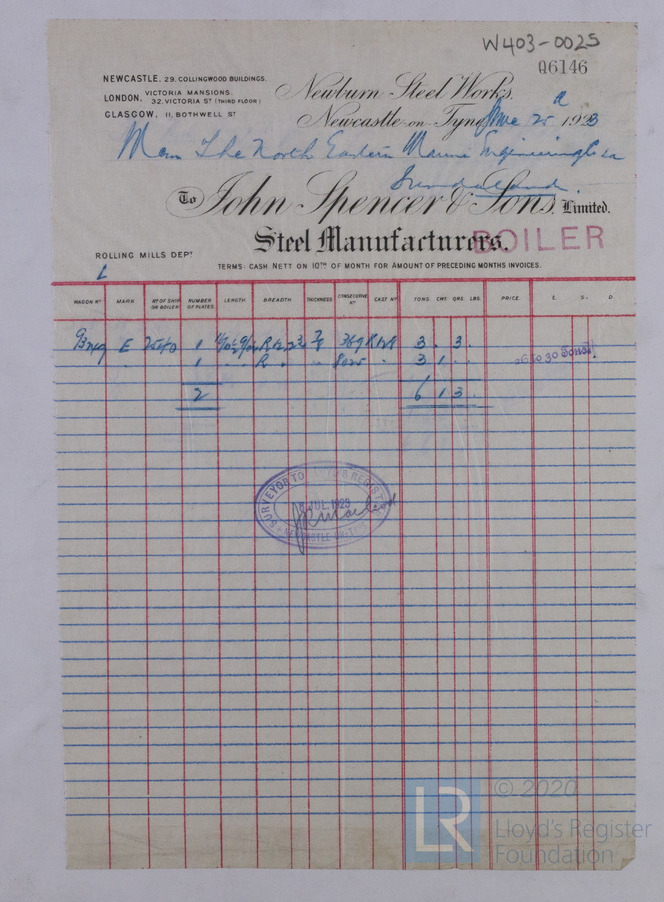 W403-0025
Q6146
NEWCASTLE, 29, COLLINGWOOD BUILDINGS.
LONDON, VICTORIA MANSIONS, 32, VICTORIA ST (THIRD FLOOR)
GLASGOW, 11, BOTHWELL ST
Newburn Steel Works.
Newcastle-on-Tyne, June 25 1923
The North Eastern Marine Engineering Co
Sunderland.
To John Spencer & Sons, Limited.
Steel Manufacturers.
BOILER
ROLLING MILLS DEPT
TERMS: CASH NETT ON 10TH OF MONTH FOR AMOUNT OF PRECEDING MONTHS INVOICES.
WAGON NO MARK NO OF SHIP OR BOILER NUMBER OF PLATES. LENGTH. BREADTH THICKNESS CONSECUTIVE NO CAST NO TONS. CWT. QRS. LBS. PRICE. £. S. D.
E 1 R 3 . 3 .
1 . . R . 3 1 . .
26 to 30 Tons
2 6 1 3 .
SURVEYOR TO LLOYD'S REGISTER
JUL. 1923
NEWCASTLE-ON-TYNE
LR
© 2020
Lloyd's Register
Foundation